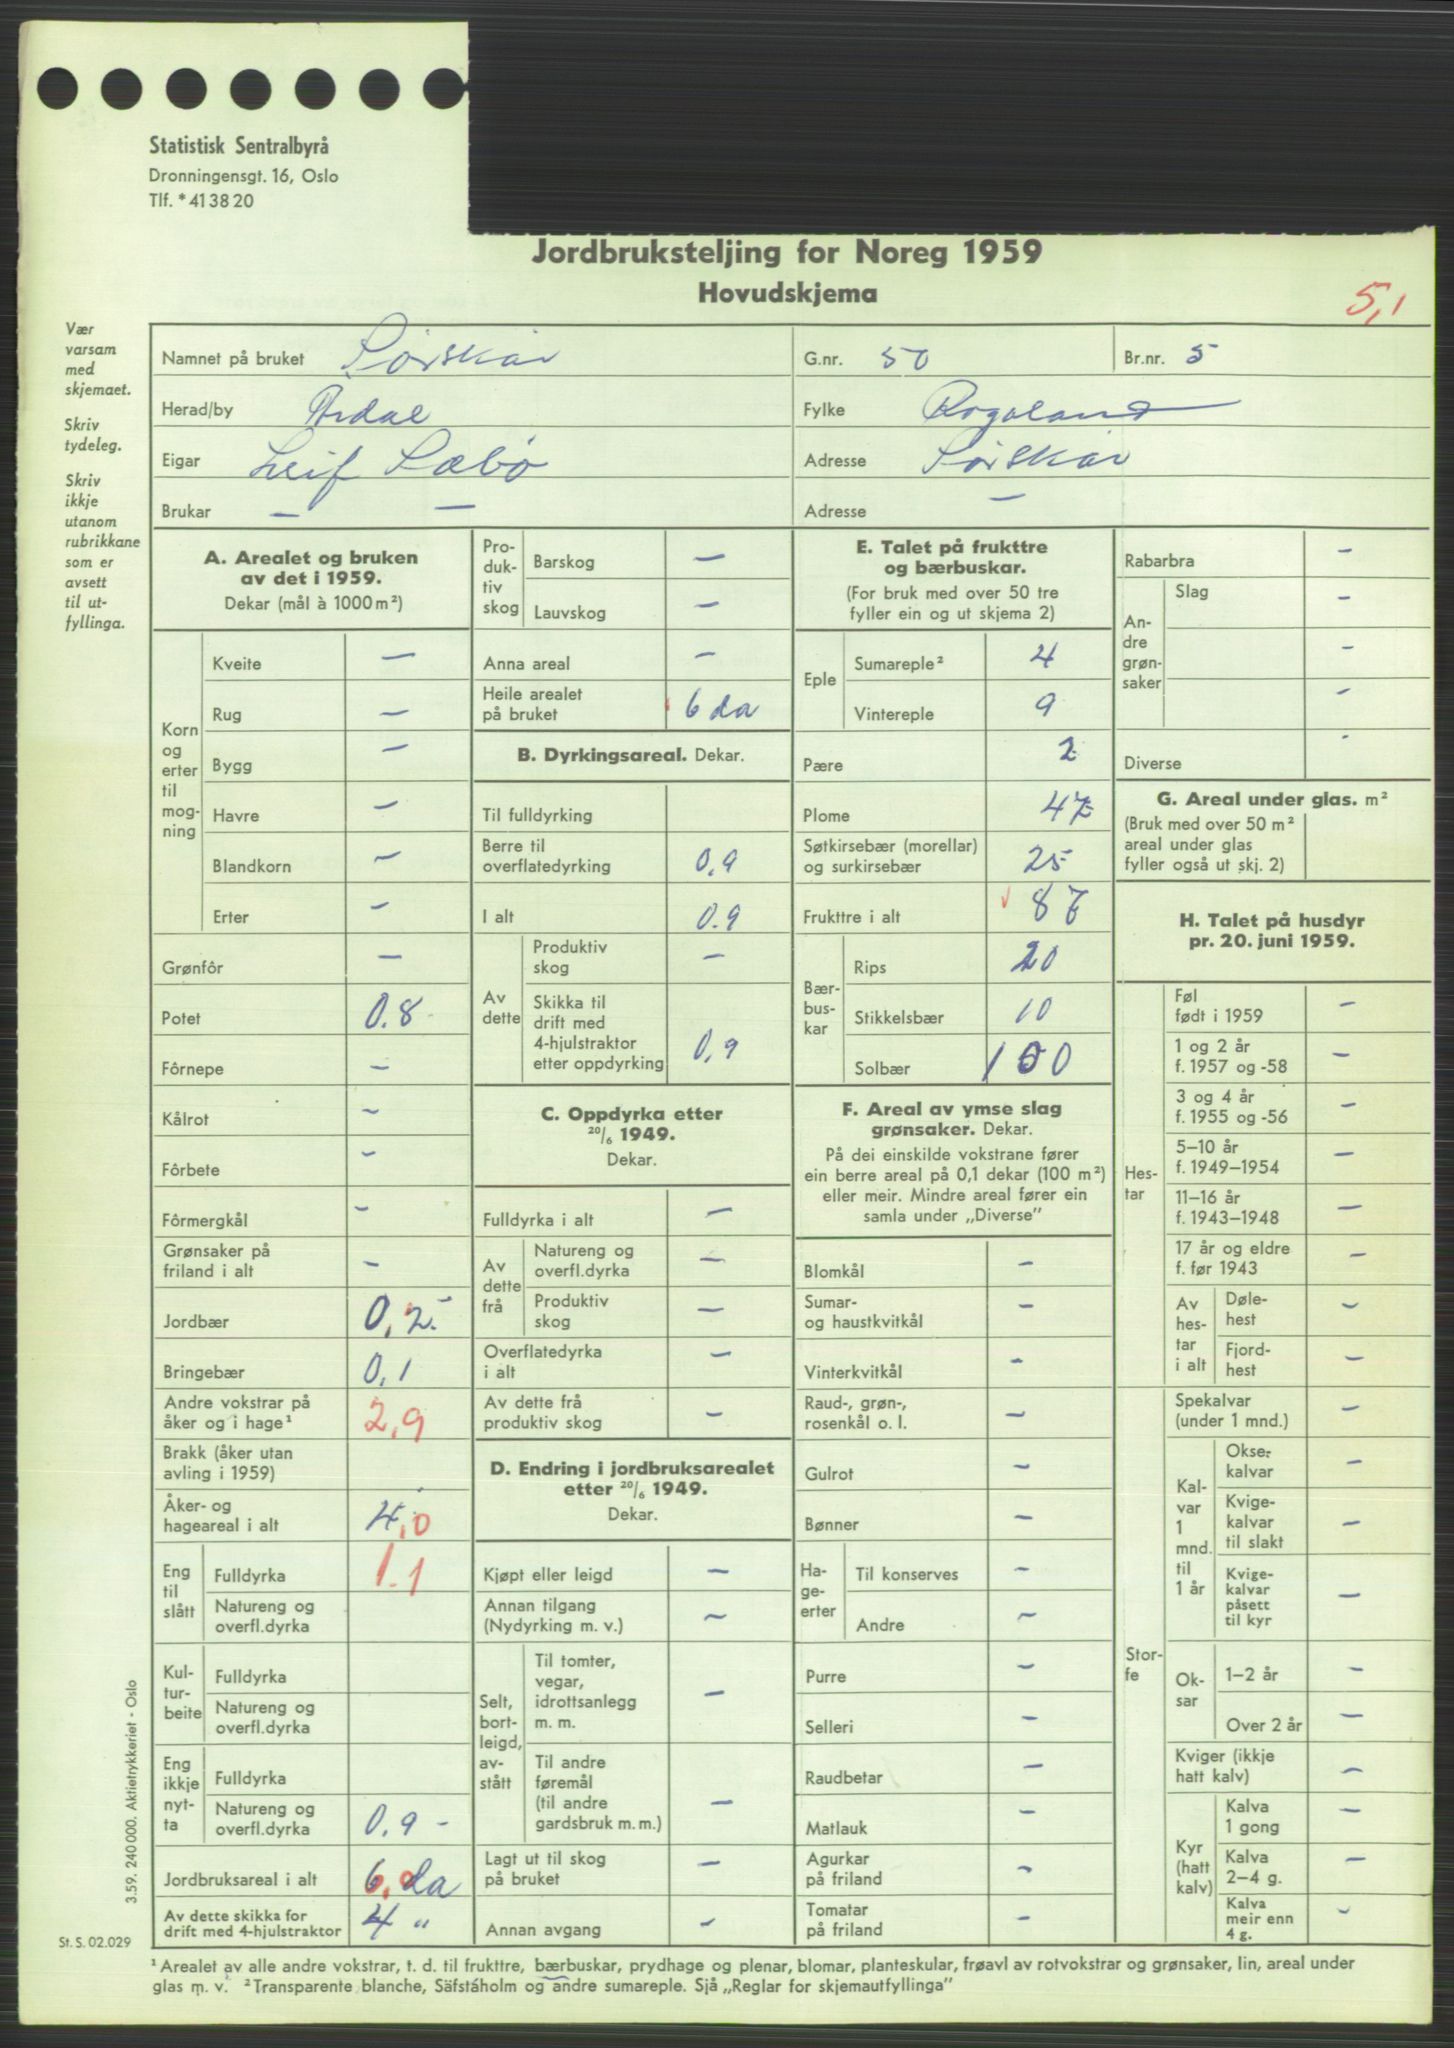 Statistisk Sentralbyrå
Dronningensgt. 16, Oslo
Tlf. *41 38 20
Jordbruksteljing for Noreg 1959
Hovudskjema
5,1
Vær
varsam
med
skjemaet.
Skriv
tydeleg.
Skriv
ikkje
utanom
rubrikkane
som er
avsett
til ut-
fyllinga.
Namnet på bruket Sørskår G.nr. 50 Br.nr. 5
Herad/by Årdal Fylke Rogaland
Eigar Leif Sæbø Adresse Sørskår
Brukar — — Adresse —
A. Arealet og bruken
av det i 1959.
Dekar (mål à 1000 m²)
Korn
og
erter
til
mog-
ning
Kveite —
Rug —
Bygg —
Havre —
Blandkorn —
Erter —
Grønfôr —
Potet 0.8
Fôrnepe —
Kålrot —
Fôrbete —
Fôrmergkål —
Grønsaker på
friland i alt —
Jordbær 0,2
Bringebær 0,1
Andre vokstrar på
åker og i hage¹ 2,9
Brakk (åker utan
avling i 1959)
Åker- og
hageareal i alt 4,0
Eng
til
slått
Fulldyrka 1.1
Natureng og
overfl.dyrka
Kul-
tur-
beite
Fulldyrka
Natureng og
overfl.dyrka
Eng
ikkje
nyt-
ta
Fulldyrka
Natureng og
overfl.dyrka 0,9 -
Jordbruksareal i alt 6,0 da
Av dette skikka for
drift med 4-hjulstraktor 4 "
Pro-
duk-
tiv
skog
Barskog —
Lauvskog —
Anna areal —
Heile arealet
på bruket 6 da
B. Dyrkingsareal. Dekar.
Til fulldyrking
Berre til
overflatedyrking 0,9
I alt 0.9
Av
dette
Produktiv
skog —
Skikka til
drift med
4-hjulstraktor
etter oppdyrking 0,9
C. Oppdyrka etter
20/6 1949.
Dekar.
Fulldyrka i alt —
Av
dette
frå
Natureng og
overfl.dyrka —
Produktiv
skog —
Overflatedyrka
i alt —
Av dette frå
produktiv skog —
D. Endring i jordbruksarealet
etter 20/6 1949.
Dekar.
Kjøpt eller leigd —
Annan tilgang
(Nydyrking m. v.) —
Selt,
bort-
leigd,
av-
stått
Til tomter,
vegar,
idrottsanlegg
m. m. —
Til andre
føremål
(til andre
gardsbruk m. m.) —
Lagt ut til skog
på bruket —
Annan avgang —
E. Talet på frukttre
og bærbuskar.
(For bruk med over 50 tre
fyller ein og ut skjema 2)
Eple
Sumareple² 4
Vintereple 9
Pære 2
Plome 47
Søtkirsebær (morellar)
og surkirsebær 25
Frukttre i alt 87
Bær-
bus-
kar
Rips 20
Stikkelsbær 10
Solbær 100
F. Areal av ymse slag
grønsaker. Dekar.
På dei einskilde vokstrane fører
ein berre areal på 0,1 dekar (100 m²)
eller meir. Mindre areal fører ein
samla under „Diverse”
Blomkål —
Sumar-
og haustkvitkål —
Vinterkvitkål —
Raud-, grøn-,
rosenkål o. l. —
Gulrot —
Bønner —
Ha-
ge-
erter
Til konserves —
Andre —
Purre —
Selleri —
Raudbetar —
Matlauk —
Agurkar
på friland —
Tomatar
på friland —
Rabarbra —
An-
dre
grøn-
saker
Slag —
—
—
Diverse -
G. Areal under glas. m²
(Bruk med over 50 m²
areal under glas
fyller også ut skj. 2)
H. Talet på husdyr
pr. 20. juni 1959.
Hes-
tar
Føl
født i 1959 —
1 og 2 år
f. 1957 og -58 —
3 og 4 år
f. 1955 og -56 —
5–10 år
f. 1949–1954 —
11–16 år
f. 1943–1948 —
17 år og eldre
f. før 1943 —
Av
hes-
tar
i alt
Døle-
hest —
Fjord-
hest —
Stor-
fe
Spekalvar
(under 1 mnd.) —
Kal-
var
1
mnd.
til
1 år
Okse-
kalvar —
Kvige-
kalvar
til slakt —
Kvige-
kalvar
påsett
til kyr —
Ok-
sar
1–2 år —
Over 2 år —
Kviger (ikkje
hatt kalv) —
Kyr
(hatt
kalv)
Kalva
1 gong —
Kalva
2–4 g. —
Kalva
meir enn
4 g. —
3.59. 240 000. Aktietrykkeriet - Oslo
St. S. 02.029
¹ Arealet av alle andre vokstrar, t. d. til frukttre, bærbuskar, prydhage og plenar, blomar, planteskular, frøavl av rotvokstrar og grønsaker, lin, areal under
glas m. v. ² Transparente blanche, Säfstaholm og andre sumareple. Sjå „Reglar for skjemautfyllinga”